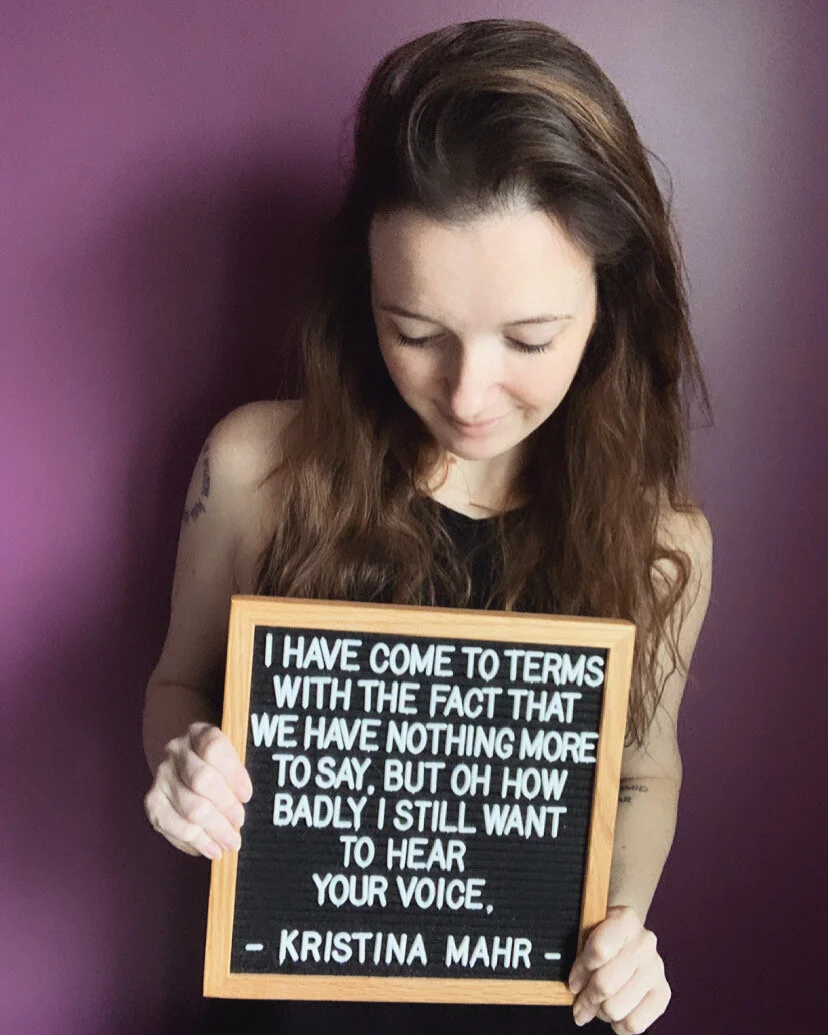 I HAVE COME TO TERMS
WITH THE FACT THAT
WE HAVE NOTHING MORE
TO SAY, BUT OH HOW
BADLY I STILL WANT
TO HEAR
YOUR VOICE,
- KRISTINA MAHR -